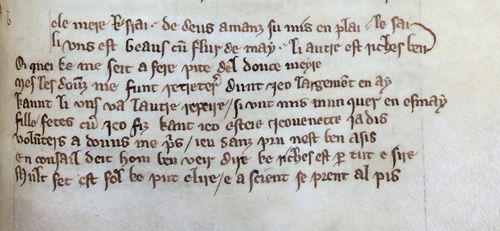 ele mere k frai . de deus amanz su mis en plai . le sai
li vns est beaus cū flur de may . li autre est riches ben
O quei ke me seit a fere pite del douce meyre
Mes les dou me funt dunt ieo largemēt en ay
kaunt li vns va lautre repeire / si unt mis mun quer en esmay
fille fetes cū ieo fiz kant ieo esteie ioeuenette iadis
volūters a douns me / ieu sanz pru nest ben asis
en consail deit hom ben veir dire ke riches est p tut e sire
Mult fet est fol ke put elire / e a scient se prent al pis